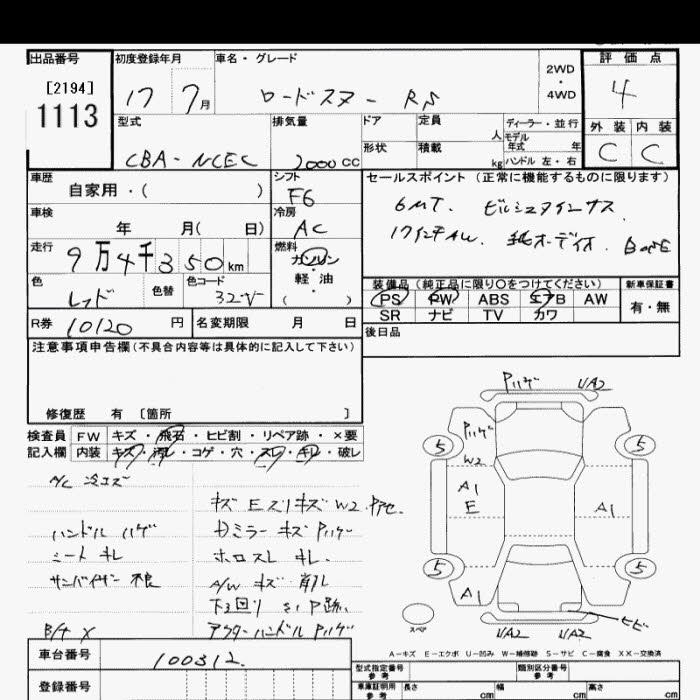 出品番号 初度登録年月 車名・グレード 評価点
[2194]
1113
17 7月 ロードスター RS 2WD・4WD 4
型式 排気量 ドア 定員 人 ディーラー・並行 外装 内装
モデル年式 年
CBA-NCEC 2000cc 形状 積載 kg ハンドル 左・右 C C
車歴 自家用・( ) シフト F6 セールスポイント (正常に機能するものに限ります)
車検 年 月( 日) 冷房 AC
6MT. ビルシュタインサス
17インチAW. 純オーディオ.
走行 9万4千350km 燃料 ガソリン・軽油( )
色 レッド 色替 色コード 32V
装備品 (純正品に限り〇をつけてください) 新車保証書
PS PW ABS エアB AW 有・無
SR ナビ TV カワ
R券 10120円 名変期限 月 日 後日品
注意事項申告欄(不具合内容等は具体的に記入して下さい)
修復歴 有 [箇所 ]
検査員記入欄 FW キズ・飛石・ヒビ割・リペア跡・×要
内装 キズ・汚レ・コゲ・穴・スレ・キレ・破レ
A/C 冷エズ
キズ エクリキズ W2
ハンドル ハゲ
ドミラー キズ Pハゲ
シート キレ
ホロスレ キレ.
サンバイザー 不良
A/W キズ 削レ
下回リ
アウターハンドル Pハゲ
Pハゲ UA2
Pハゲ
5 5
W2
A1
E
A1
5 5
A1
スペア
ヒビ
UA2 UA2
A-キズ E-エクボ U-凹み W-補修跡 S-サビ C-腐食 XX-交換済
車台番号 100312.
登録番号
型式指定番号 参考 類別区分番号 参考
車庫証明用 参考 長さ cm 幅 cm 高さ cm